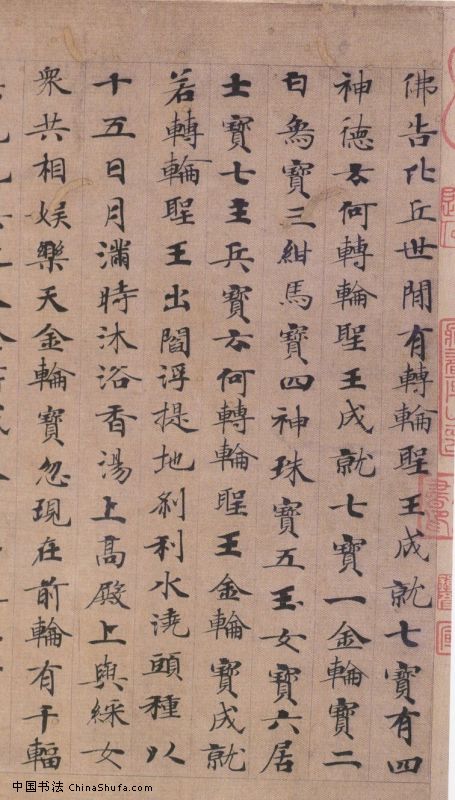 佛告比丘世間有轉輪聖王成就七寶有四
神德云何轉輪聖王成就七寶一金輪寶二
白象寶三紺馬寶四神珠寶五玉女寶六居
士寶七主兵寶云何轉輪聖王金輪寶成就
若轉輪聖王出閻浮提地剎利水澆頭種以
十五日月滿時沐浴香湯上高殿上與綵女
眾共相娛樂天金輪寶忽現在前輪有千輻
中国书法 ChinaShufa.com